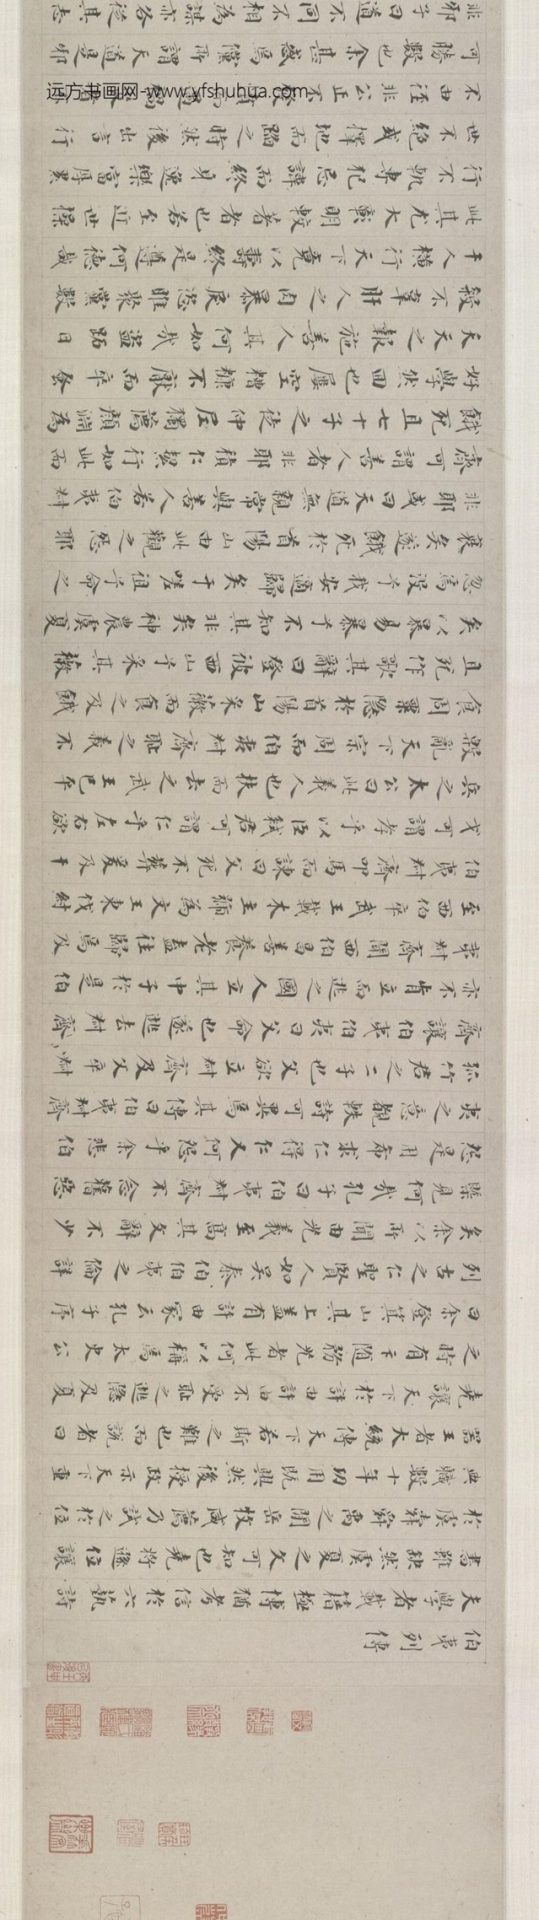 伯夷列傳
夫學者載籍極博猶考信於六藝詩
書雖缺然虞夏之文可知也堯將遜位讓
於虞舜舜禹之間岳牧咸薦乃試之於位
典職數十年功用既興然後授政示天下重
器王者大統傳天下若斯之難也而說者曰
堯讓天下於許由許由不受恥之逃隱及夏
之時有卞隨務光者此何以稱焉太史公
曰余登箕山其上蓋有許由冢云孔子序
列古之仁聖賢人如吳泰伯伯夷之倫詳
矣余以所聞由光義至高其文辭不少
槩見何哉孔子曰伯夷叔齊不念舊惡
怨是用希求仁得仁又何怨乎余悲伯
夷之意覩軼詩可異焉其傳曰伯夷叔齊
孤竹君之二子也父欲立叔齊及父卒叔
齊讓伯夷伯夷曰父命也遂逃去叔齊
亦不肯立而逃之國人立其中子於是伯
夷叔齊聞西伯昌善養老盍往歸焉及
至西伯卒武王載木主號為文王東伐紂
伯夷叔齊叩馬而諫曰父死不葬爰及干
戈可謂孝乎以臣弒君可謂仁乎左右欲
兵之太公曰此義人也扶而去之武王已平
殷亂天下宗周而伯夷叔齊恥之義不
食周粟隱於首陽山采薇而食之及餓
且死作歌其辭曰登彼西山兮采其薇
矣以暴易暴兮不知其非矣神農虞夏
忽焉沒兮我安適歸矣于嗟徂兮命之
衰矣遂餓死於首陽山由此觀之怨耶
非耶或曰天道無親常與善人若伯夷叔
齊可謂善人者非耶積仁絜行如此而
餓死且七十子之徒仲尼獨薦顏淵為
好學然回也屢空糟糠不厭而卒蚤
夭天之報施善人其何如哉盜跖日
殺不辜肝人之肉暴戾恣睢聚黨數
千人橫行天下竟以壽終是遵何德哉
此其尤大彰明較著者也若至近世操
行不軌專犯忌諱而終身逸樂富厚累
世不絕或擇地而蹈之時然後出言行
不由徑非公正不
可勝數也余甚惑焉儻所謂天道是邪
非邪子曰道不同不相為謀亦各從其志
远方书画网-www.yfshuhua.com